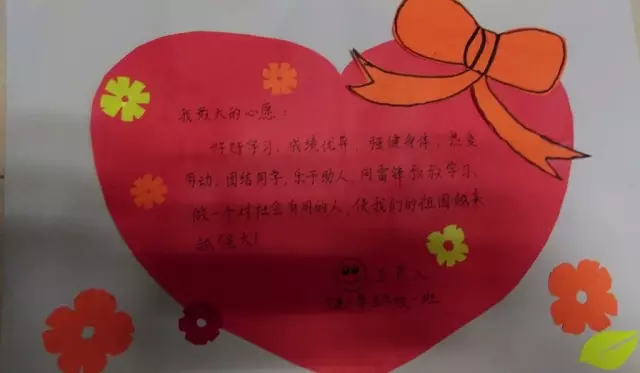 我最大的心愿:
好好学习、成绩优异、强健身体、热爱
劳动、团结同学,乐于助人、向雷锋叔叔学习、
做一个对社会有用的人,使我们的祖国越来
越强大!
王
年级一班